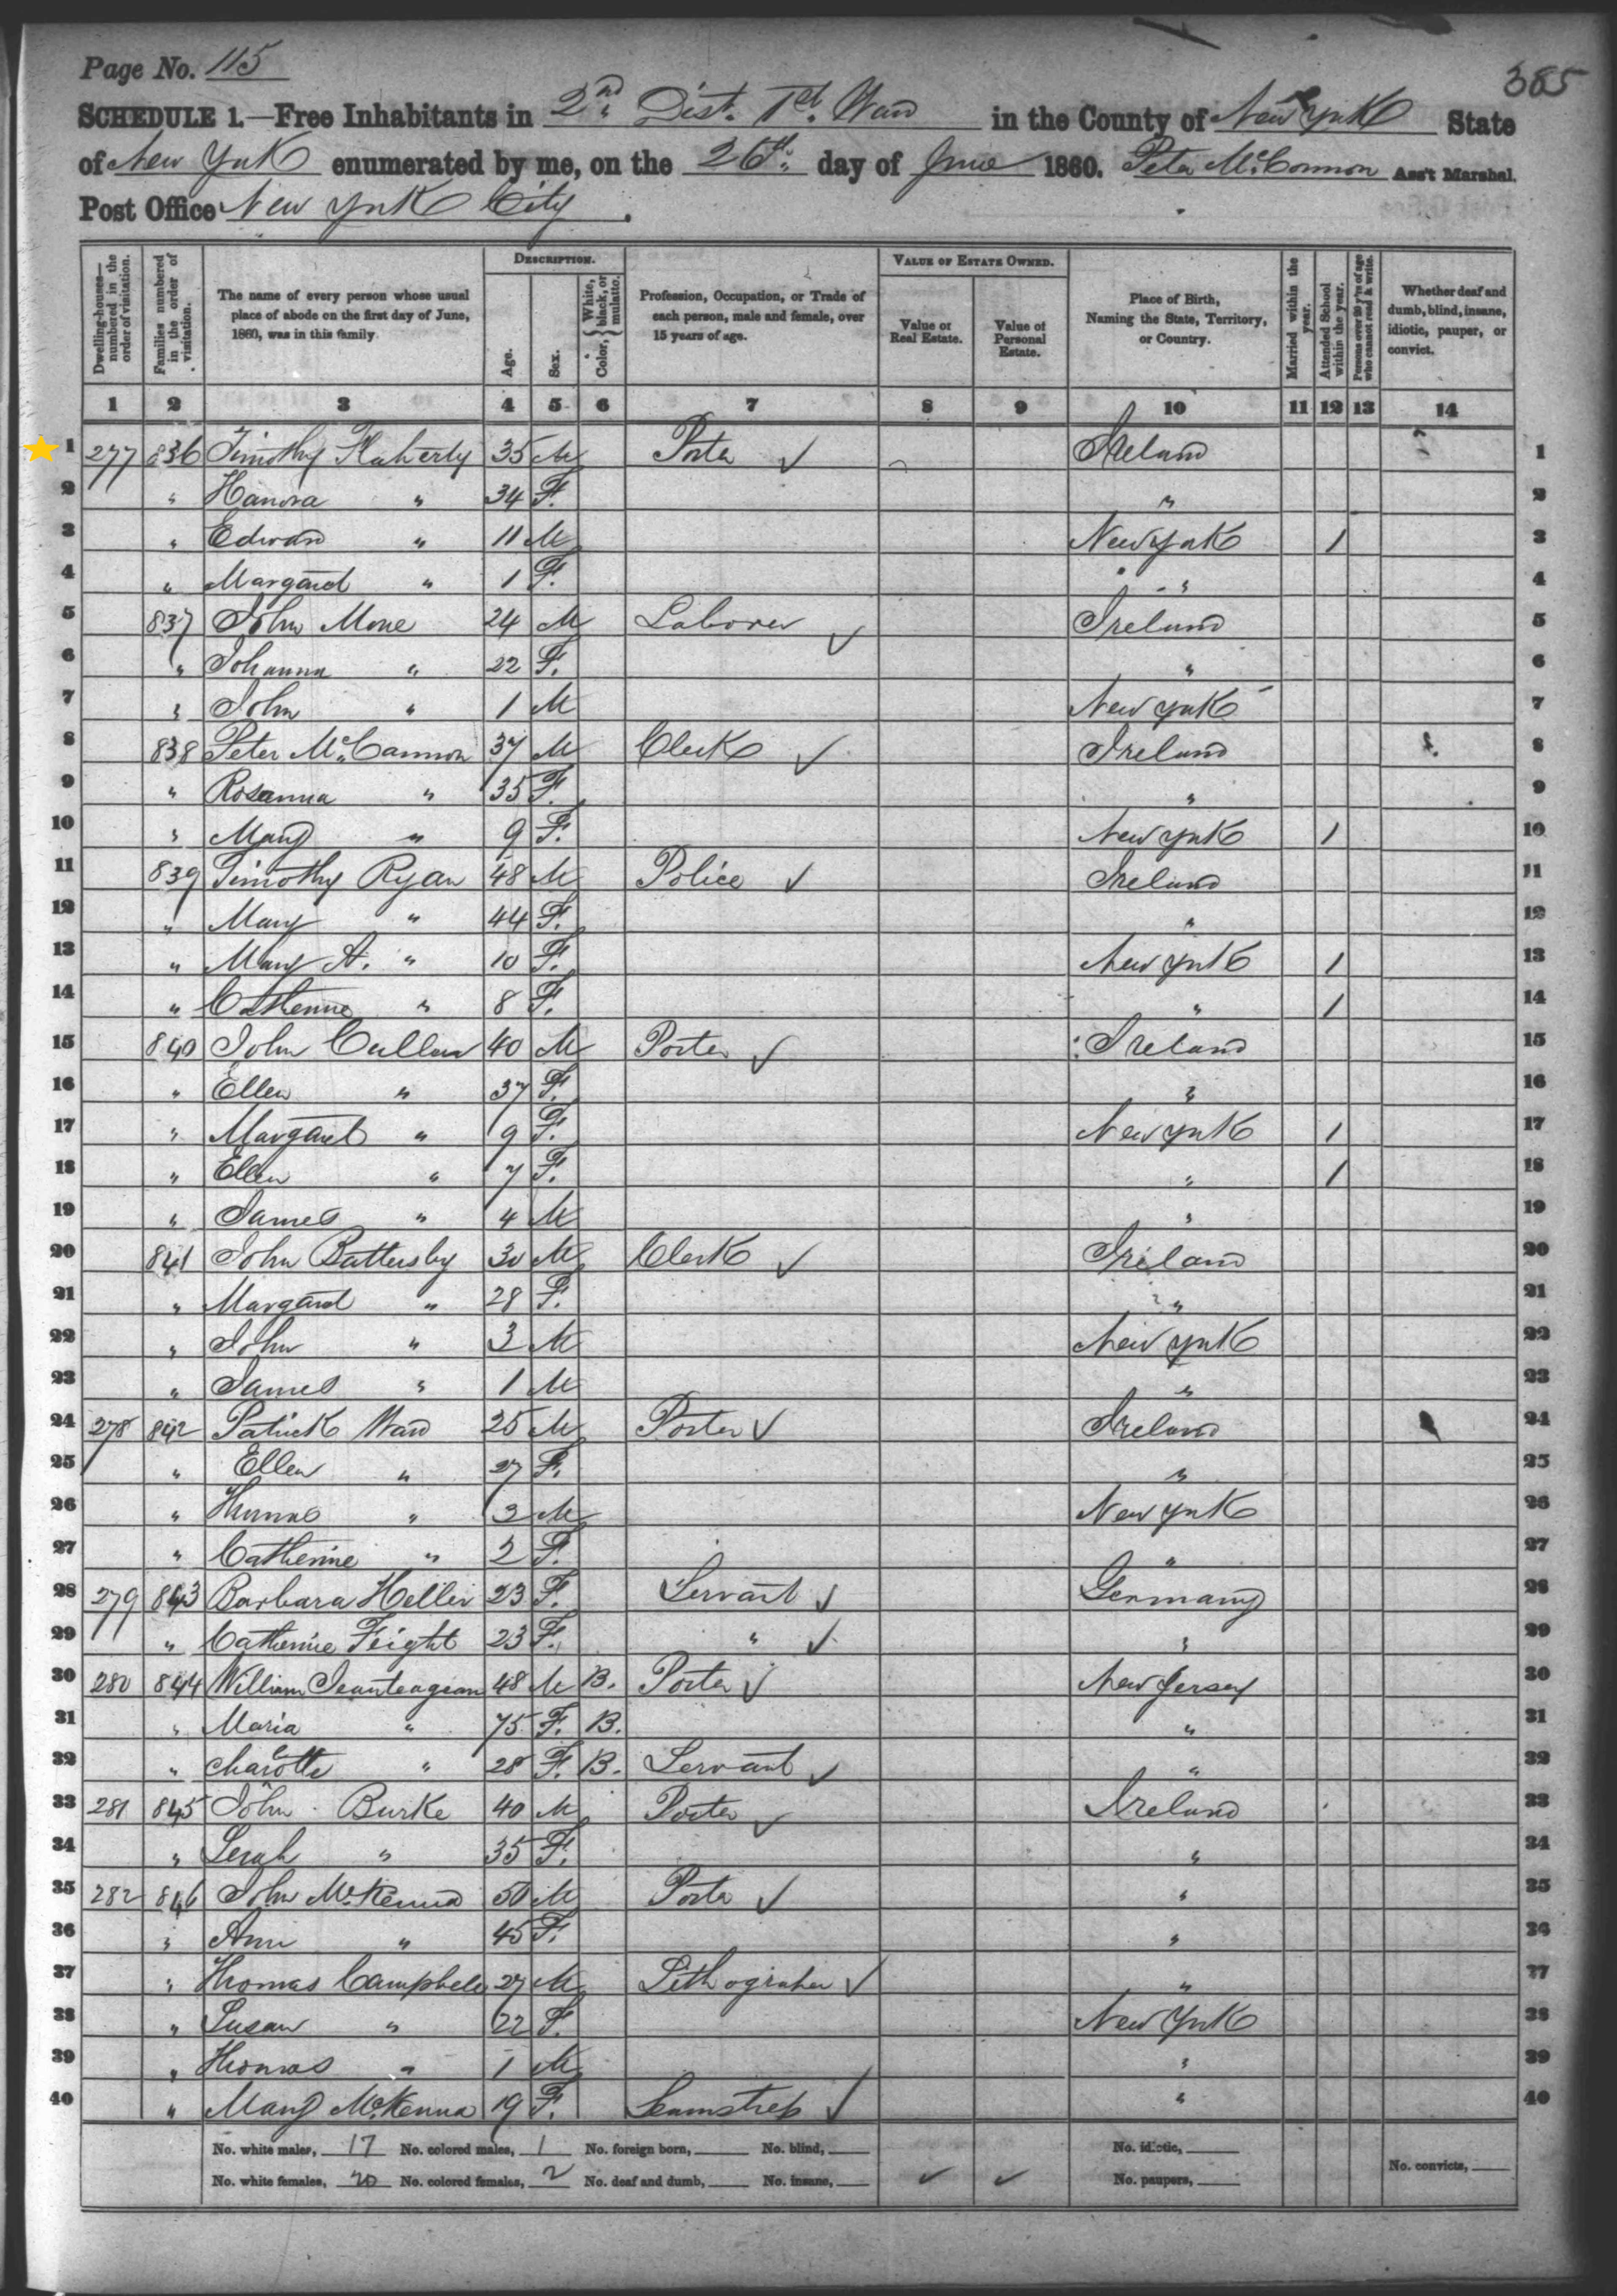 Page No. 115
385
SCHEDULE 1.—Free Inhabitants in 2nd Dist. 1st Ward in the County of New York State
of New York enumerated by me, on the 26th day of June 1860. Peter McCannon Ass't Marshal.
Post Office New York City.
Dwelling-houses—numbered in the order of visitation.
Families numbered in the order of visitation.
The name of every person whose usual place of abode on the first day of June, 1860, was in this family
DESCRIPTION.
Age.
Sex.
Color, { White, black, or mulatto.
Profession, Occupation, or Trade of each person, male and female, over 15 years of age.
VALUE OF ESTATE OWNED.
Value of Real Estate.
Value of Personal Estate.
Place of Birth, Naming the State, Territory, or Country.
Married within the year.
Attended School within the year.
Persons over 20 y'rs of age who cannot read & write.
Whether deaf and dumb, blind, insane, idiotic, pauper, or convict.
1 2 3 4 5 6 7 8 9 10 11 12 13 14
1 277 836 Timothy Flaherty 35 M Porter ✓ Ireland 1
2 " Hanora " 34 F. " 2
3 " Edward " 11 M New York 1 3
4 " Margaret " 1 F. " " 4
5 837 John Mone 24 M Laborer ✓ Ireland 5
6 " Johanna " 22 F. " 6
7 " John " 1 M New York 7
8 838 Peter McCannon 37 M Clerk ✓ Ireland 8
9 " Rosanna " 35 F. " 9
10 " Mary " 9 F. New York 1 10
11 839 Timothy Ryan 48 M Police ✓ Ireland 11
12 " Mary " 44 F. " 12
13 " Mary A. " 10 F. New York 1 13
14 " Catherine " 8 F. " 1 14
15 840 John Cullen 40 M Porter ✓ Ireland 15
16 " Ellen " 37 F. " 16
17 " Margaret " 9 F. New York 1 17
18 " Ellen " 7 F. " 1 18
19 " James " 4 M " 19
20 841 John Battersby 30 M Clerk ✓ Ireland 20
21 " Margaret " 28 F. " 21
22 " John " 3 M New York 22
23 " James " 1 M " 23
24 278 842 Patrick Ward 25 M Porter ✓ Ireland 24
25 " Ellen " 27 F. " 25
26 " " 3 M New York 26
27 " Catherine " 2 F. " 27
28 279 843 Barbara Heller 23 F. Servant ✓ Germany 28
29 " Catherine Feight 23 F. " ✓ " 29
30 280 844 William 48 M B. Porter ✓ New Jersey 30
31 " Maria " 75 F. B. " 31
32 " Charlotte " 28 F. B. Servant ✓ " 32
33 281 845 John Burke 40 M Porter ✓ Ireland 33
34 " Serah " 35 F. " 34
35 282 846 John McKenna 50 M Porter ✓ " 35
36 " Ann " 45 F. " 36
37 " Thomas Campbell 27 M Lithographer ✓ " 37
38 " Susan " 22 F. New York 38
39 " Thomas " 1 M " 39
40 " Mary McKenna 19 F. Seamstress ✓ " 40
No. white males, 17 No. colored males, 1 No. foreign born, No. blind, No. idiotic,
No. white females, 20 No. colored females, 2 No. deaf and dumb, No. insane, ✓ ✓ No. paupers, No. convicts,